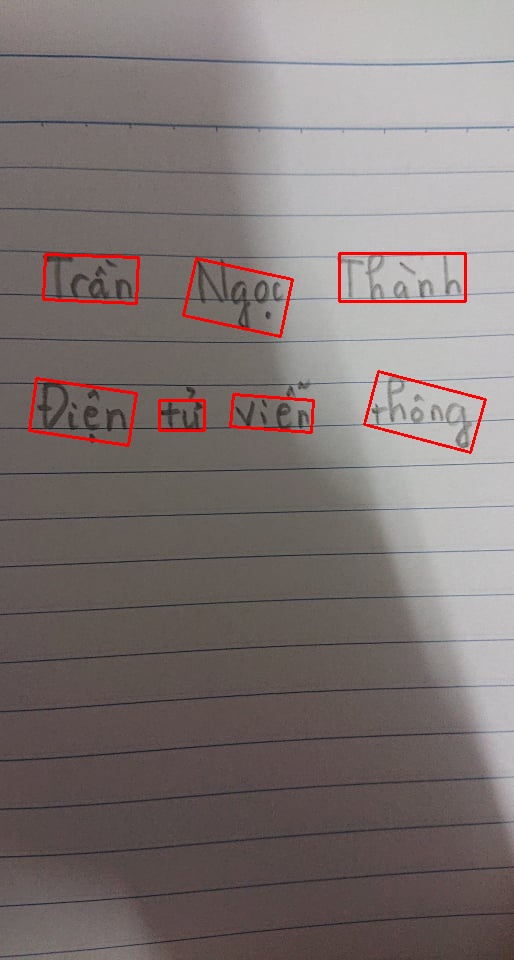 Trần Ngọc Thành
Điện tử viễn thông